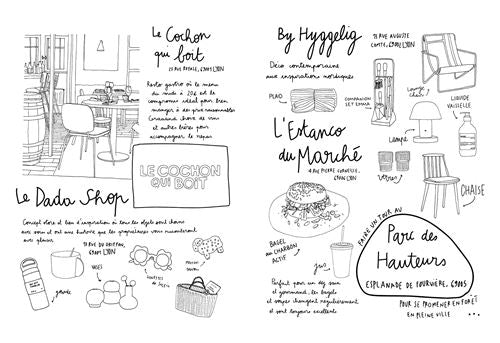 Le Cochon
qui boit
23 RUE ROYALE, 69001 LYON
Resto gastro où le menu
du midi à 20€ est le
compromis idéal pour bien
manger à un prix raisonnable.
Grande choix de vin
et autres bières pour
accompagner le repas.
LE COCHON
QUI BOIT
Le Dada Shop
Concept store et lieu d'inspiration où tous les objets sont choisis
avec soin et ont une histoire que les propriétaires vous raconteront
avec plaisir
69001 LYON
gourde
VASES
lunettes
de soleil
By Hyggelig
73 RUE AUGUSTE
COMTE, 69002 LYON
Déco contemporaine
aux inspirations nordiques
PLAID
COMPAGNON
DE CHEMINÉE
Lounge
chair
LIQUIDE
VAISSELLE
Lampe
verres
CHAISE
L'Estanco
du Marché
4 RUE PIERRE CORNEILLE,
BAGEL
AU CHARBON
ACTIF
jus
Parfait pour un déj sain
et gourmand, les bagels
et soupes changent régulièrement
et sont toujours excellents
FAIRE UN TOUR AU
Parc des
Hauteurs
ESPLANADE DE FOURVIÈRE, 69005
POUR SE PROMENER EN FORÊT
EN PLEINE VILLE ...